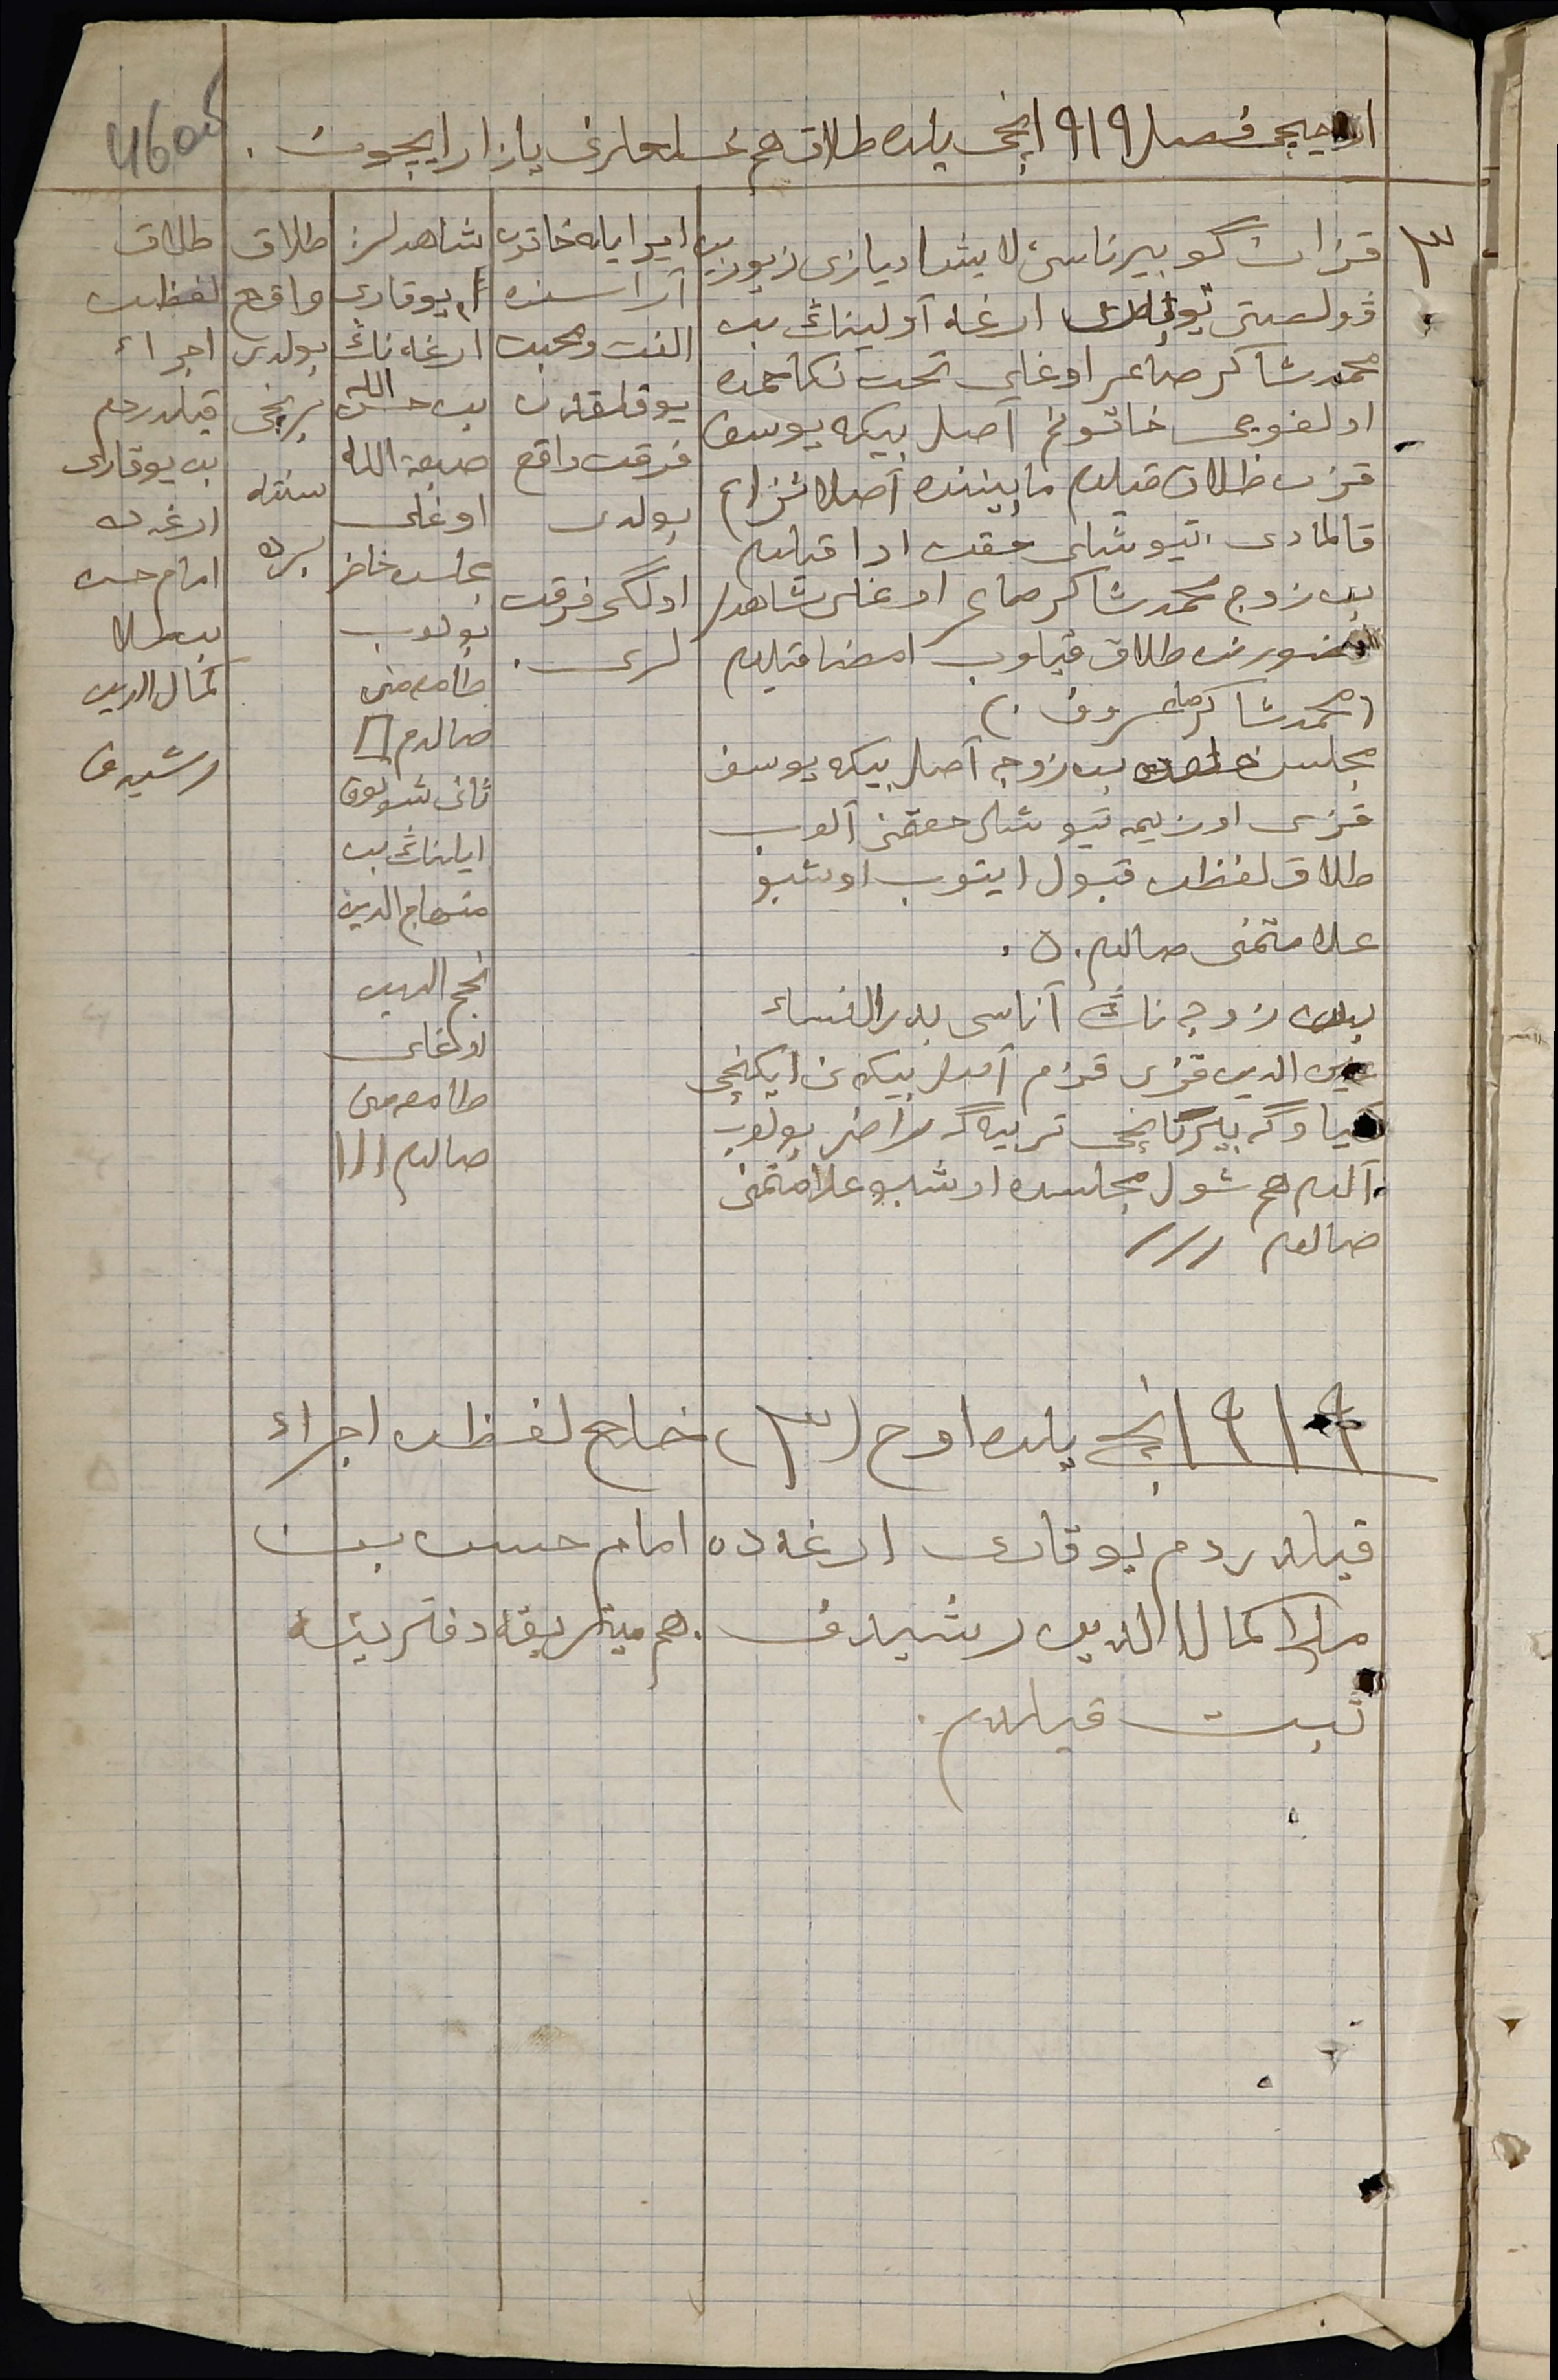 46 об
اوچنچی فصل ۱۹۱۹ انچی یلده طلاق هم خلعلرنی یازار ایچون .
۳
قزان گوبیرناسی لایشا اویازی
ولصتی یوقاری ارغه آولیناڭ بن
محمدشاکر صابر اوغلی تحت نکاحمده
اولغوچی خاتونم آصل بیکه یوسف
قزن طلاق قیلدم مابینده آصلا نزاع
قالمادی . تیوشلی حقن ادا قیلدم
بن زوج محمدشاکر صابر اوغلی شاهدلر
حضورنده طلاق قیلوب امضا قیلدم
(محمدشاکر صابروف .)
مجلس خلعده بن زوجه آصل بیکه یوسف
قزی اوزیمه تیوشلی حقمنی آلوب
طلاق لفظن قبول ایتوب اوشبو
علامتمنی صالدم . ٥ .
بن زوجه ناڭ آناسی بدرالنساء
الدین قزی قزم آصل بیکه نی ایکنچی
کیاوگه بیرگانچی تربیه گه راضی بولوب
آلدم هم شول مجلسده اوشبو علامتمنی
صالدم ///
ایر ایله خاتون
آراسنده
الفت ومحبت
یوقلقدن
فرقت واقع
بولدی
اولگی فرقت
لری .
شاهدلر :
۱ـم یوقاری
ارغه ناڭ
بن حسن الله
صبغة الله
اوغلی
مجلسده حاضر
بولوب
طامغامنی
صالدم
ثانی شول وق
اولناڭ بن
منهاج الدین
نجم الدین
اوغلی
طامغامنی
صالدم ///
طلاق
واقع
بولدی
برنچی
سنتده
برده
طلاق
لفظن
اجراء
قیلدردم
بن یوقاری
ارغه ده
امام حسن
بن ملا
کمال الدین
رشیدف
۱۹۱۹ نچی یلده اوچ (۳) خلع لفظن اجراء
قیلدردم یوقاری ارغه ده امام حسن بن
ملا کمال الدین رشیدف . هم میتریقه دفترینه
ثبت قیلدم .